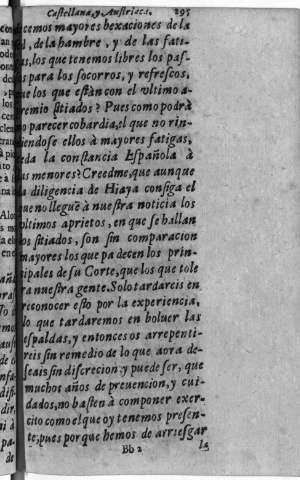 Castellana, y Austriaca. 295
cemos mayores bexaciones de la
d, de la hambre, y de las fati-
as, los que tenemos libres los pas-
s para los socorros, y refrescos,
ue los que estàn con el vltimo a-
remio sitiados? Pues como podrà
o parecer cobardia, el que no rin-
iendose ellos à mayores fatigas,
eda la constancia Española à
as menores? Creedme, que aunque
a diligencia de Hiaya consiga el
ue no llegue à nuestra noticia los
ltimos aprietos, en que se hallan
os sitiados, son sin comparacion
mayores los que padecen los prin-
ipales de su Corte, que los que tole
ra nuestra gente. Solo tardareis en
reconocer esto por la experiencia,
lo que tardaremos en boluer las
espaldas, y entonces os arrepenti-
reis sin remedio de lo que aora de-
seais sin discrecion: y puede ser, que
muchos años de preuencion, y cui-
dados, no basten à componer exer-
cito como el que oy tenemos presen-
te; pues por que hemos de arriesgar
Bb 2 la